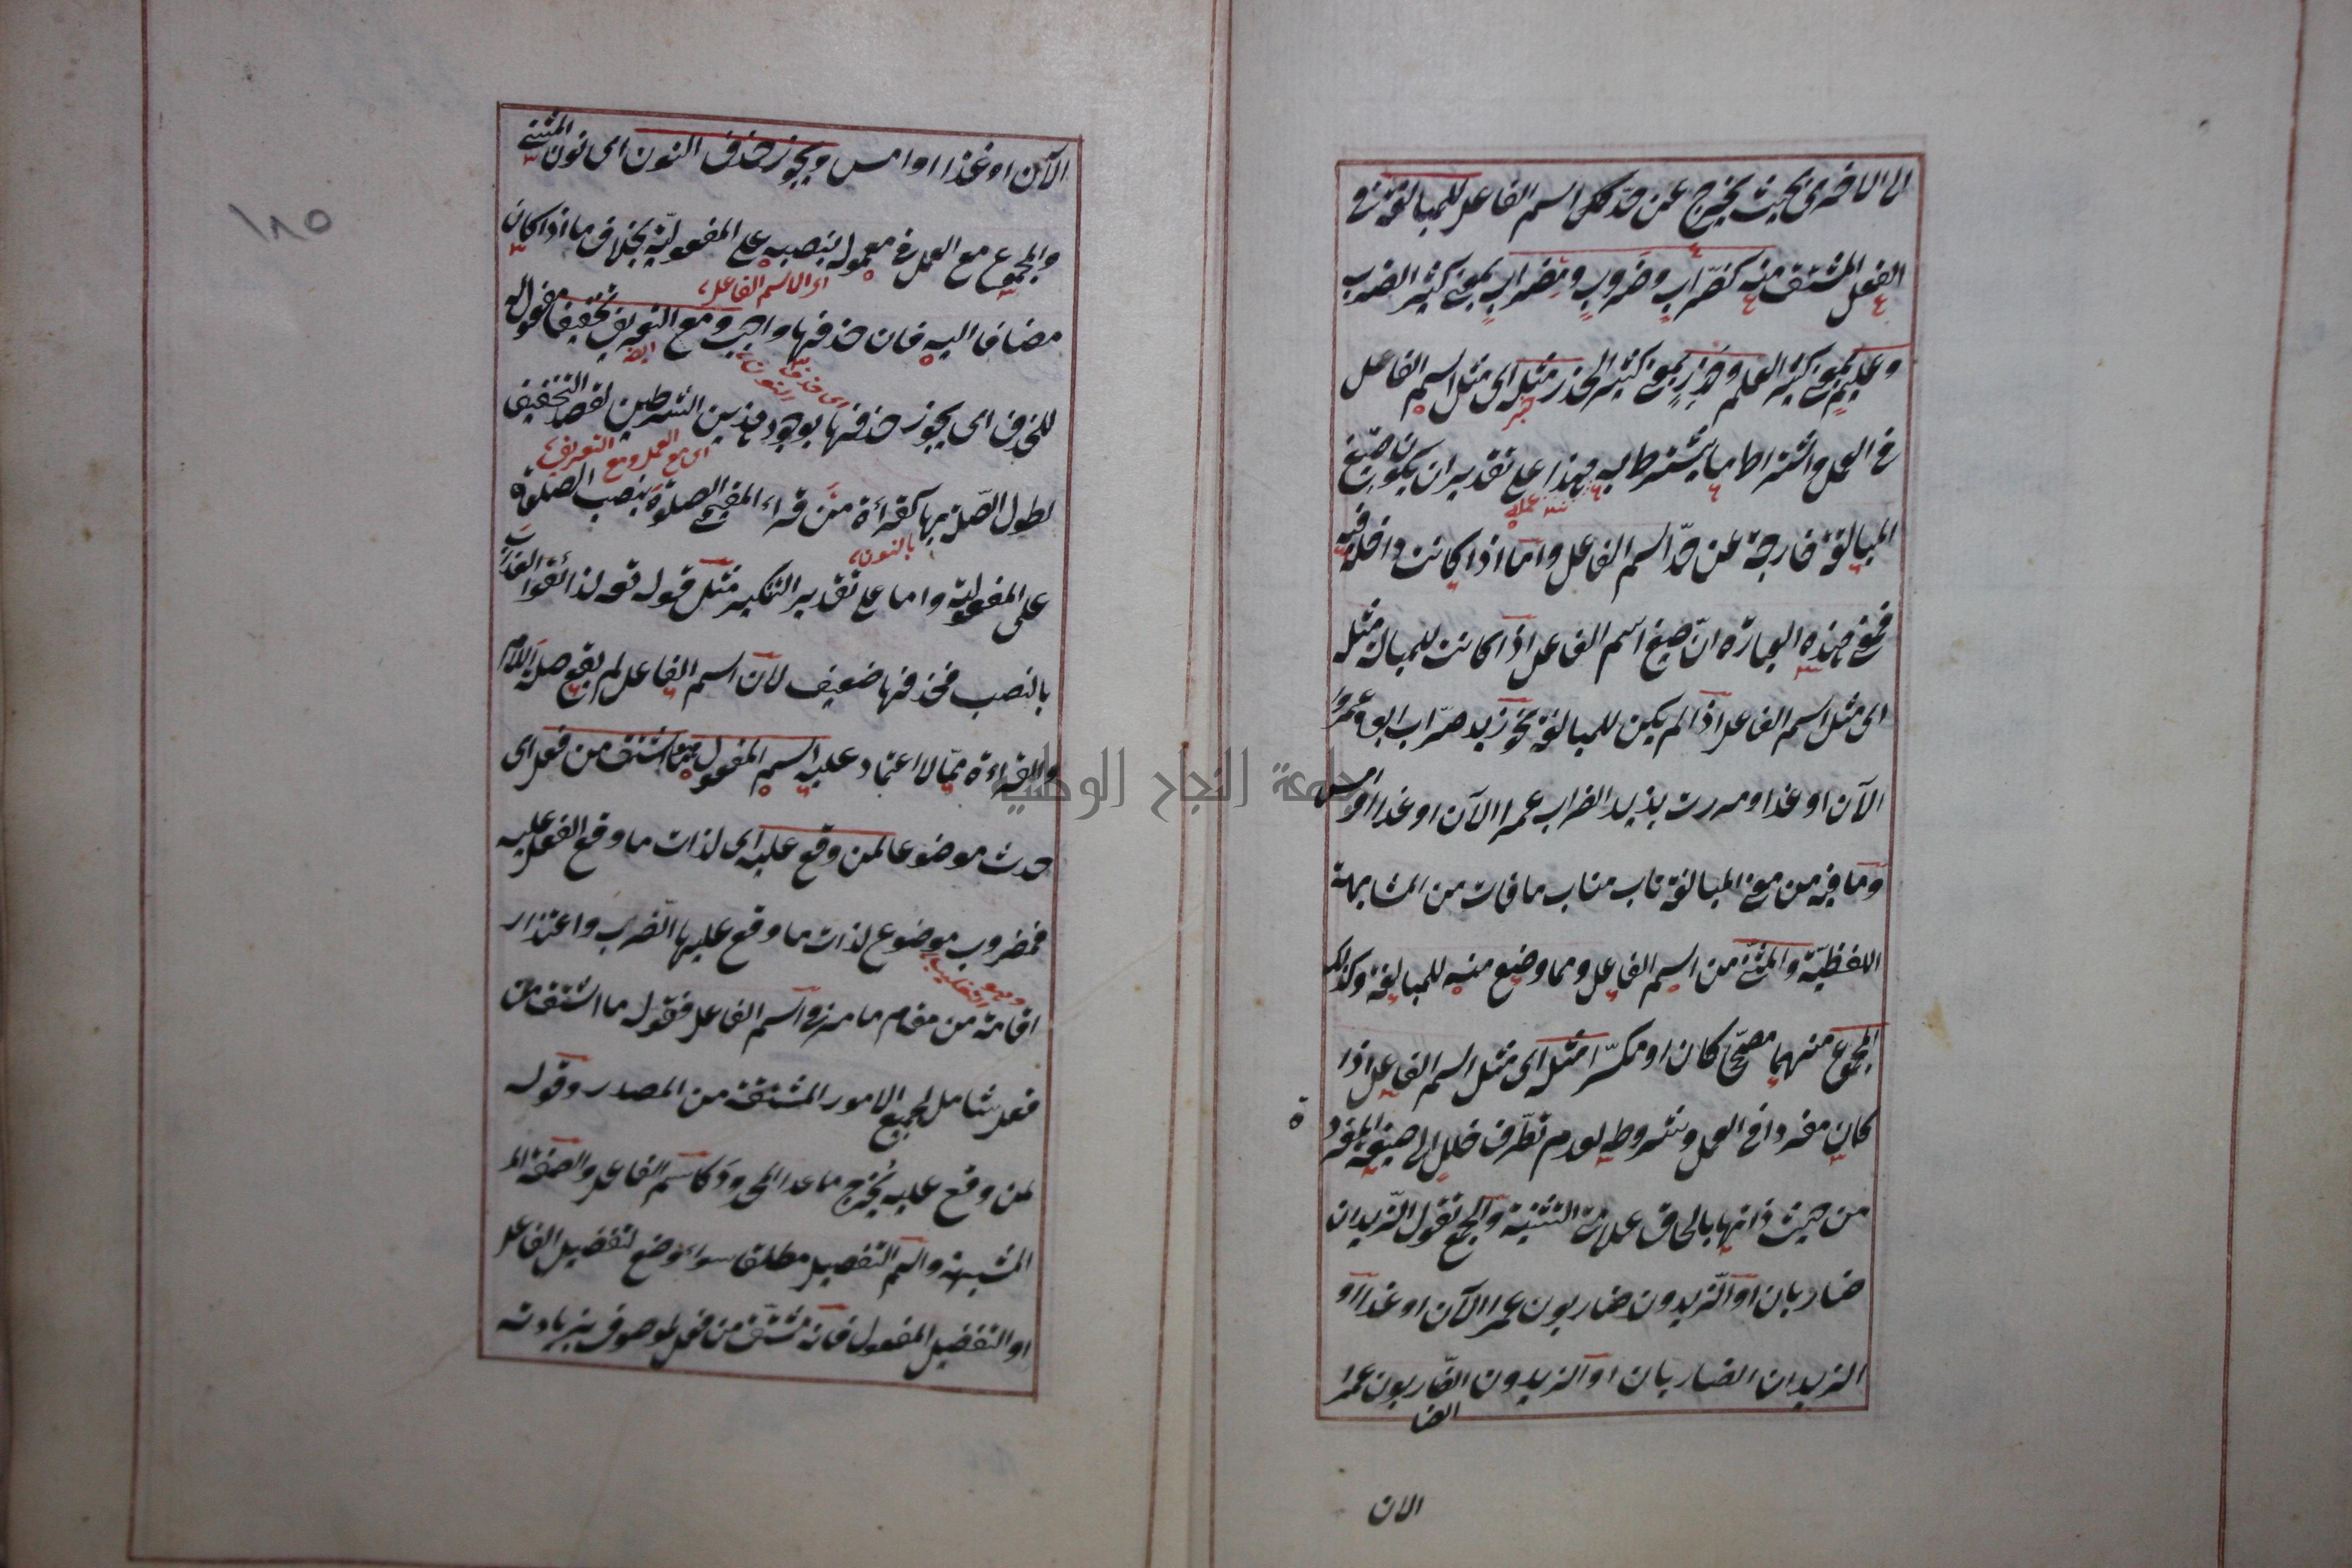 الى الاخرى بحيث يخرج عن حد اسم الفاعل للمبالغة في
الفعل المشتق منه كضرّاب وضروب ومضراب بمعنى كثير الضرب
وعليم بمعنى كثير العلم وحذر بمعنى كثير الحذر مثله اى مثل اسم الفاعل
في العمل واشتراط ما يشترط به وهذا على تقدير ان يكون صيغ
المبالغة خارجة عن حدّ اسم الفاعل واما اذا كانت داخلة فيه
فمعنى هذه العبارة انّ صيغ اسم الفاعل اذا كانت للمبالغة مثله
اى مثل اسم الفاعل اذا لم يكن للمبالغة نحو زيد ضرّاب ابوه عمروا
الآن او غدا ومررت بزيد الضراب عمرا الآن او غدا او امس
وما فيه من معنى المبالغة ناب مناب ما فات من المشابهة
اللفظيّة والمثنى من اسم الفاعل ومما وضع منه للمبالغة وكذلك
المجموع منهما مصحّحا كان او مكسّرا مثله اى مثل اسم الفاعل اذا
كان مفردا في العمل وشروطه لعدم تطرّق خلل الى صيغة المفرد
ة
من حيث ذاتها بالحاق علامة التثنية والجمع تقول الزيدان
ضاربان او الزيدون ضاربون عمرا الآن او غدا او
الزيدان الضاربان او الزيدون الضاربون عمرا
الان
١٨٥
الآن او غدا او امس ويجوز حذف النون اى نون المثنى
والمجموع مع العمل في معموله بنصبه على المفعوليّة بخلاف ما اذا كان
اى الاسم الفاعل
مضافا اليه فان حذفها واجب ومع التعريف تخفيفا مفعول له
اى حذف النون
للحذف اى يجوز حذفها بوجود هذين الشرطين لقصد التخفيف
اى مع العمل ومع التعريف
لطول الصّلة بها كقراءة من قراء المقيمي الصلوة بنصب الصلوة
بالنون
على المفعولية واما على تقدير التنكير مثل قوله تعه لذائقوا العذاب
بالنصب فحذفها ضعيف لان اسم الفاعل لم يقع صلة اللام
والقراءة ممّا لا اعتماد عليه اسم المفعول هو ما اشتق من فعل اى
حدث موضوعا لمن وقع عليه اى لذات ما وقع الفعل عليه
فمضروب موضوع لذات ما وقع عليها الضرب واعتذار
وهو التغليب
اقامة من مقام ما مر في اسم الفاعل فقوله ما اشتق من
فعل شامل لجميع الامور المشتقة من المصدر وقوله
لمن وقع عليه يُخرج ما عدا المحدود كاسم الفاعل والصفة الم
المشبهة واسم التفضيل مطلقا سواء وضع لتفضيل الفاعل
او التفضيل المفعول فانه مشتق من فعل لموصوف بزيادته
جامعة النجاح الوطنية